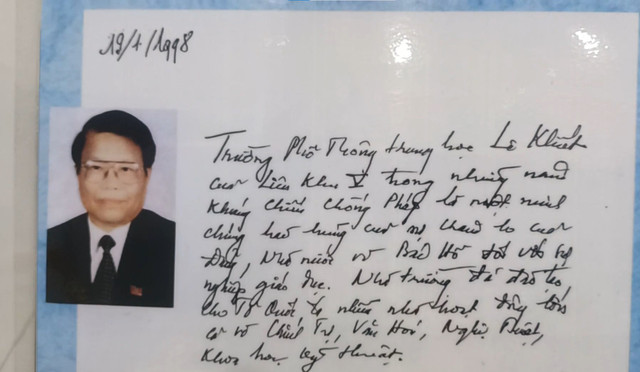 19/4/1998
Trường Phổ Thông trung học Lê Khiết
của Liên Khu V trong những năm
kháng chiến chống Pháp là một minh
chứng hào hùng của sự chăm lo của
Đảng, Nhà nước và Bác Hồ đối với sự
nghiệp giáo dục. Nhà trường đã đào tạo
cho Tổ Quốc ta nhiều nhà hoạt động lớn
cả về Chính Trị, Văn Hoá, Nghệ Thuật,
Khoa học kỹ thuật.